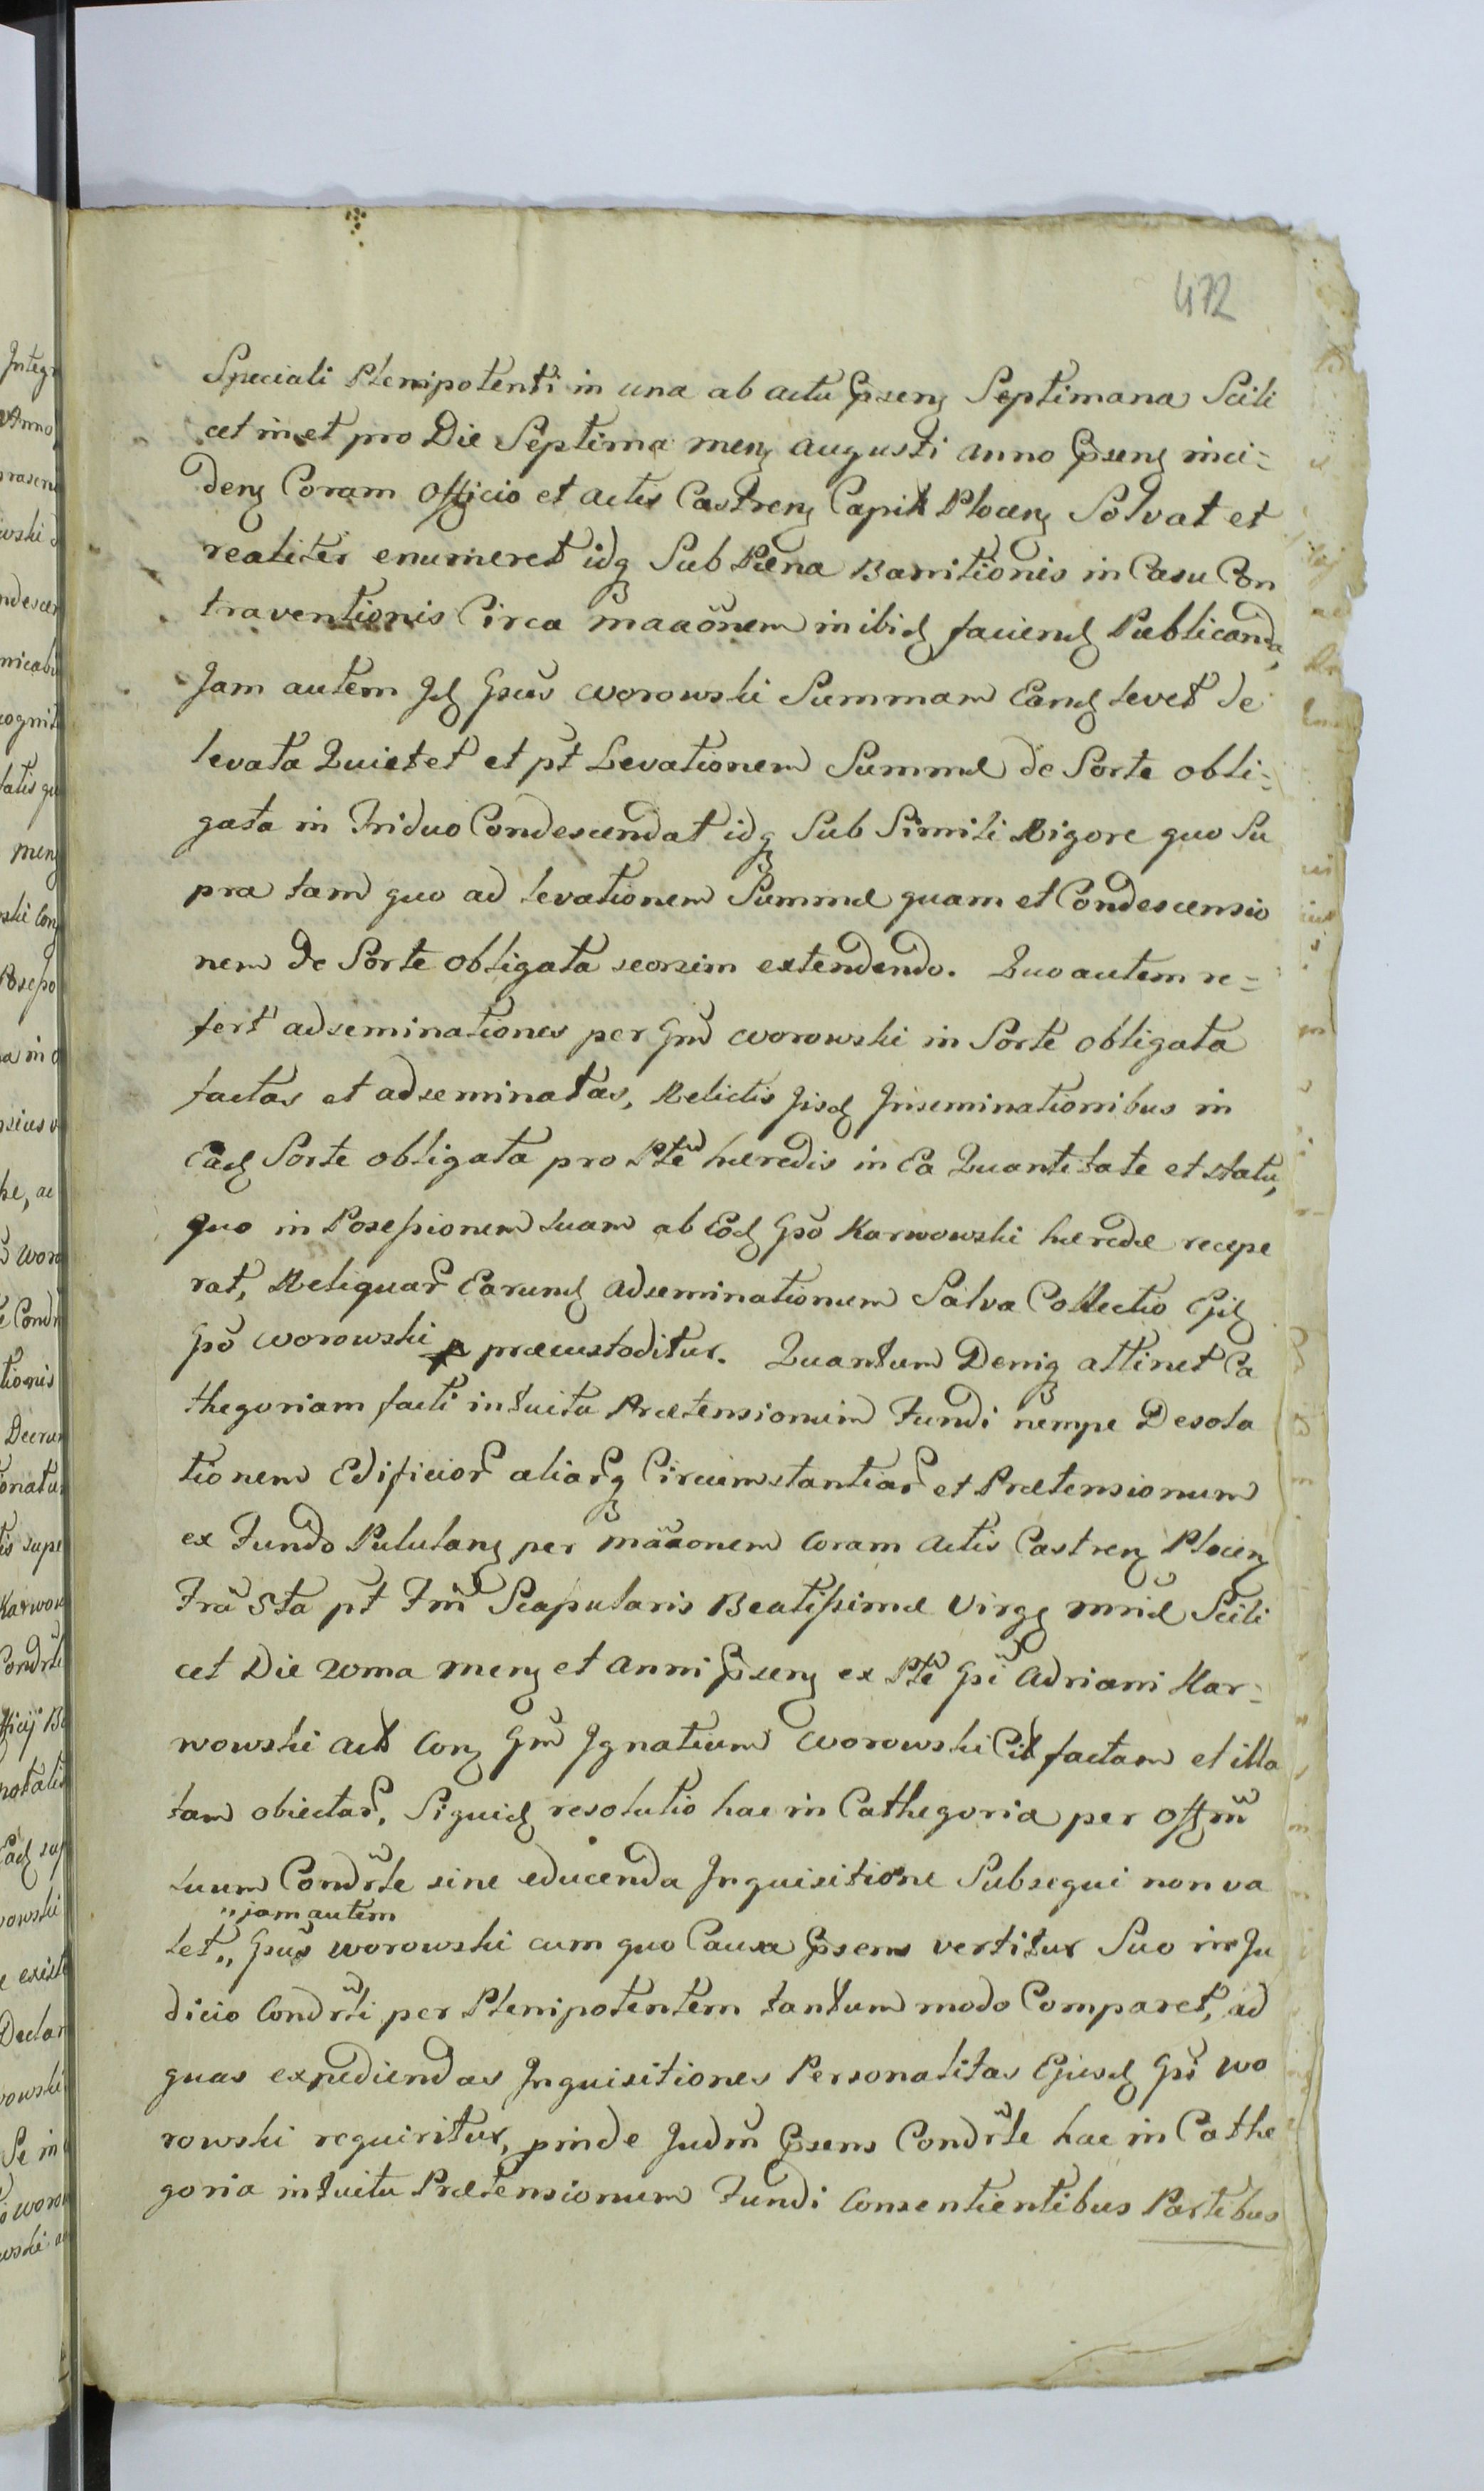 472
Speciali Plenipotenti in una ab actu Pxnς Septimana Scili
cet in et pro Die Septima menς augusti anno Pxnς inci=
denς Coram Officio et actis Castrenς Capit Plocenς Solvat et
realiter enumeret idq Sub Pœna Bannitionis in Casu Con
traventionis Circa maaõnem inibid faciend Publicanda,
Jam autem Jd Gsus Worowski Summam Eand levet de
levata Quietet et pt Levationem Summæ de Sorte obli=
gata in Triduo Condescendat idq Sub Simili Rigore quo Su
pra tam quo ad levationem Summæ quam et Condescensio
nem de Sorte obligata seorsim extendendo. Quo autem re=
fert adseminationes per Gm Worowski in Sorte obligata
factas et adseminatas, Relictis Jisd Jnseminationibus in
Ead Sorte obligata pro Pte hæredis in Ea Quantitate et statu,
quo in Possessionem suam ab Eod Gso Karwowski hærede recepe
rat, Reliquar Earund adseminationum Salva Collectio Ejd
Gso Worowski præcustoditur. Quantum Deniq attinet Ca
thegoriam facti intuitu Prætensionum Fundi nempe Desola
tionem Edificior aliarq Circumstantiar et Prætensionum
ex Fundo Pululanς per maaonem coram Actis Castrenς Plocenς
Fra Sta pt Fm Scapularis Beatissimæ Virgς mriæ Scili
cet Die 20ma menς et Anni Pxnς ex Pte Gsi Adriani Kar=
wowski act Conς Gm Jgnatium Worowski Cit factam et illa
tam obiectar, Siquid resolutio hac in Cathegoria per Offm
suum Condrle sine educenda Jnquisitione Subsequi non va
"jam autem
let" Gsus Worowski cum quo Causa Pxns vertitur Suo in Ju
dicio Condrli per Plenipotentem tantum modo Comparet, ad
quas expediendas Jnquisitiones Personalitas Ejusd Gsi Wo
rowski requiritur, pinde Judm Pxns Condrle hac in Cathe
goria intuitu Prætensionum Fundi Consentientibus Partibus